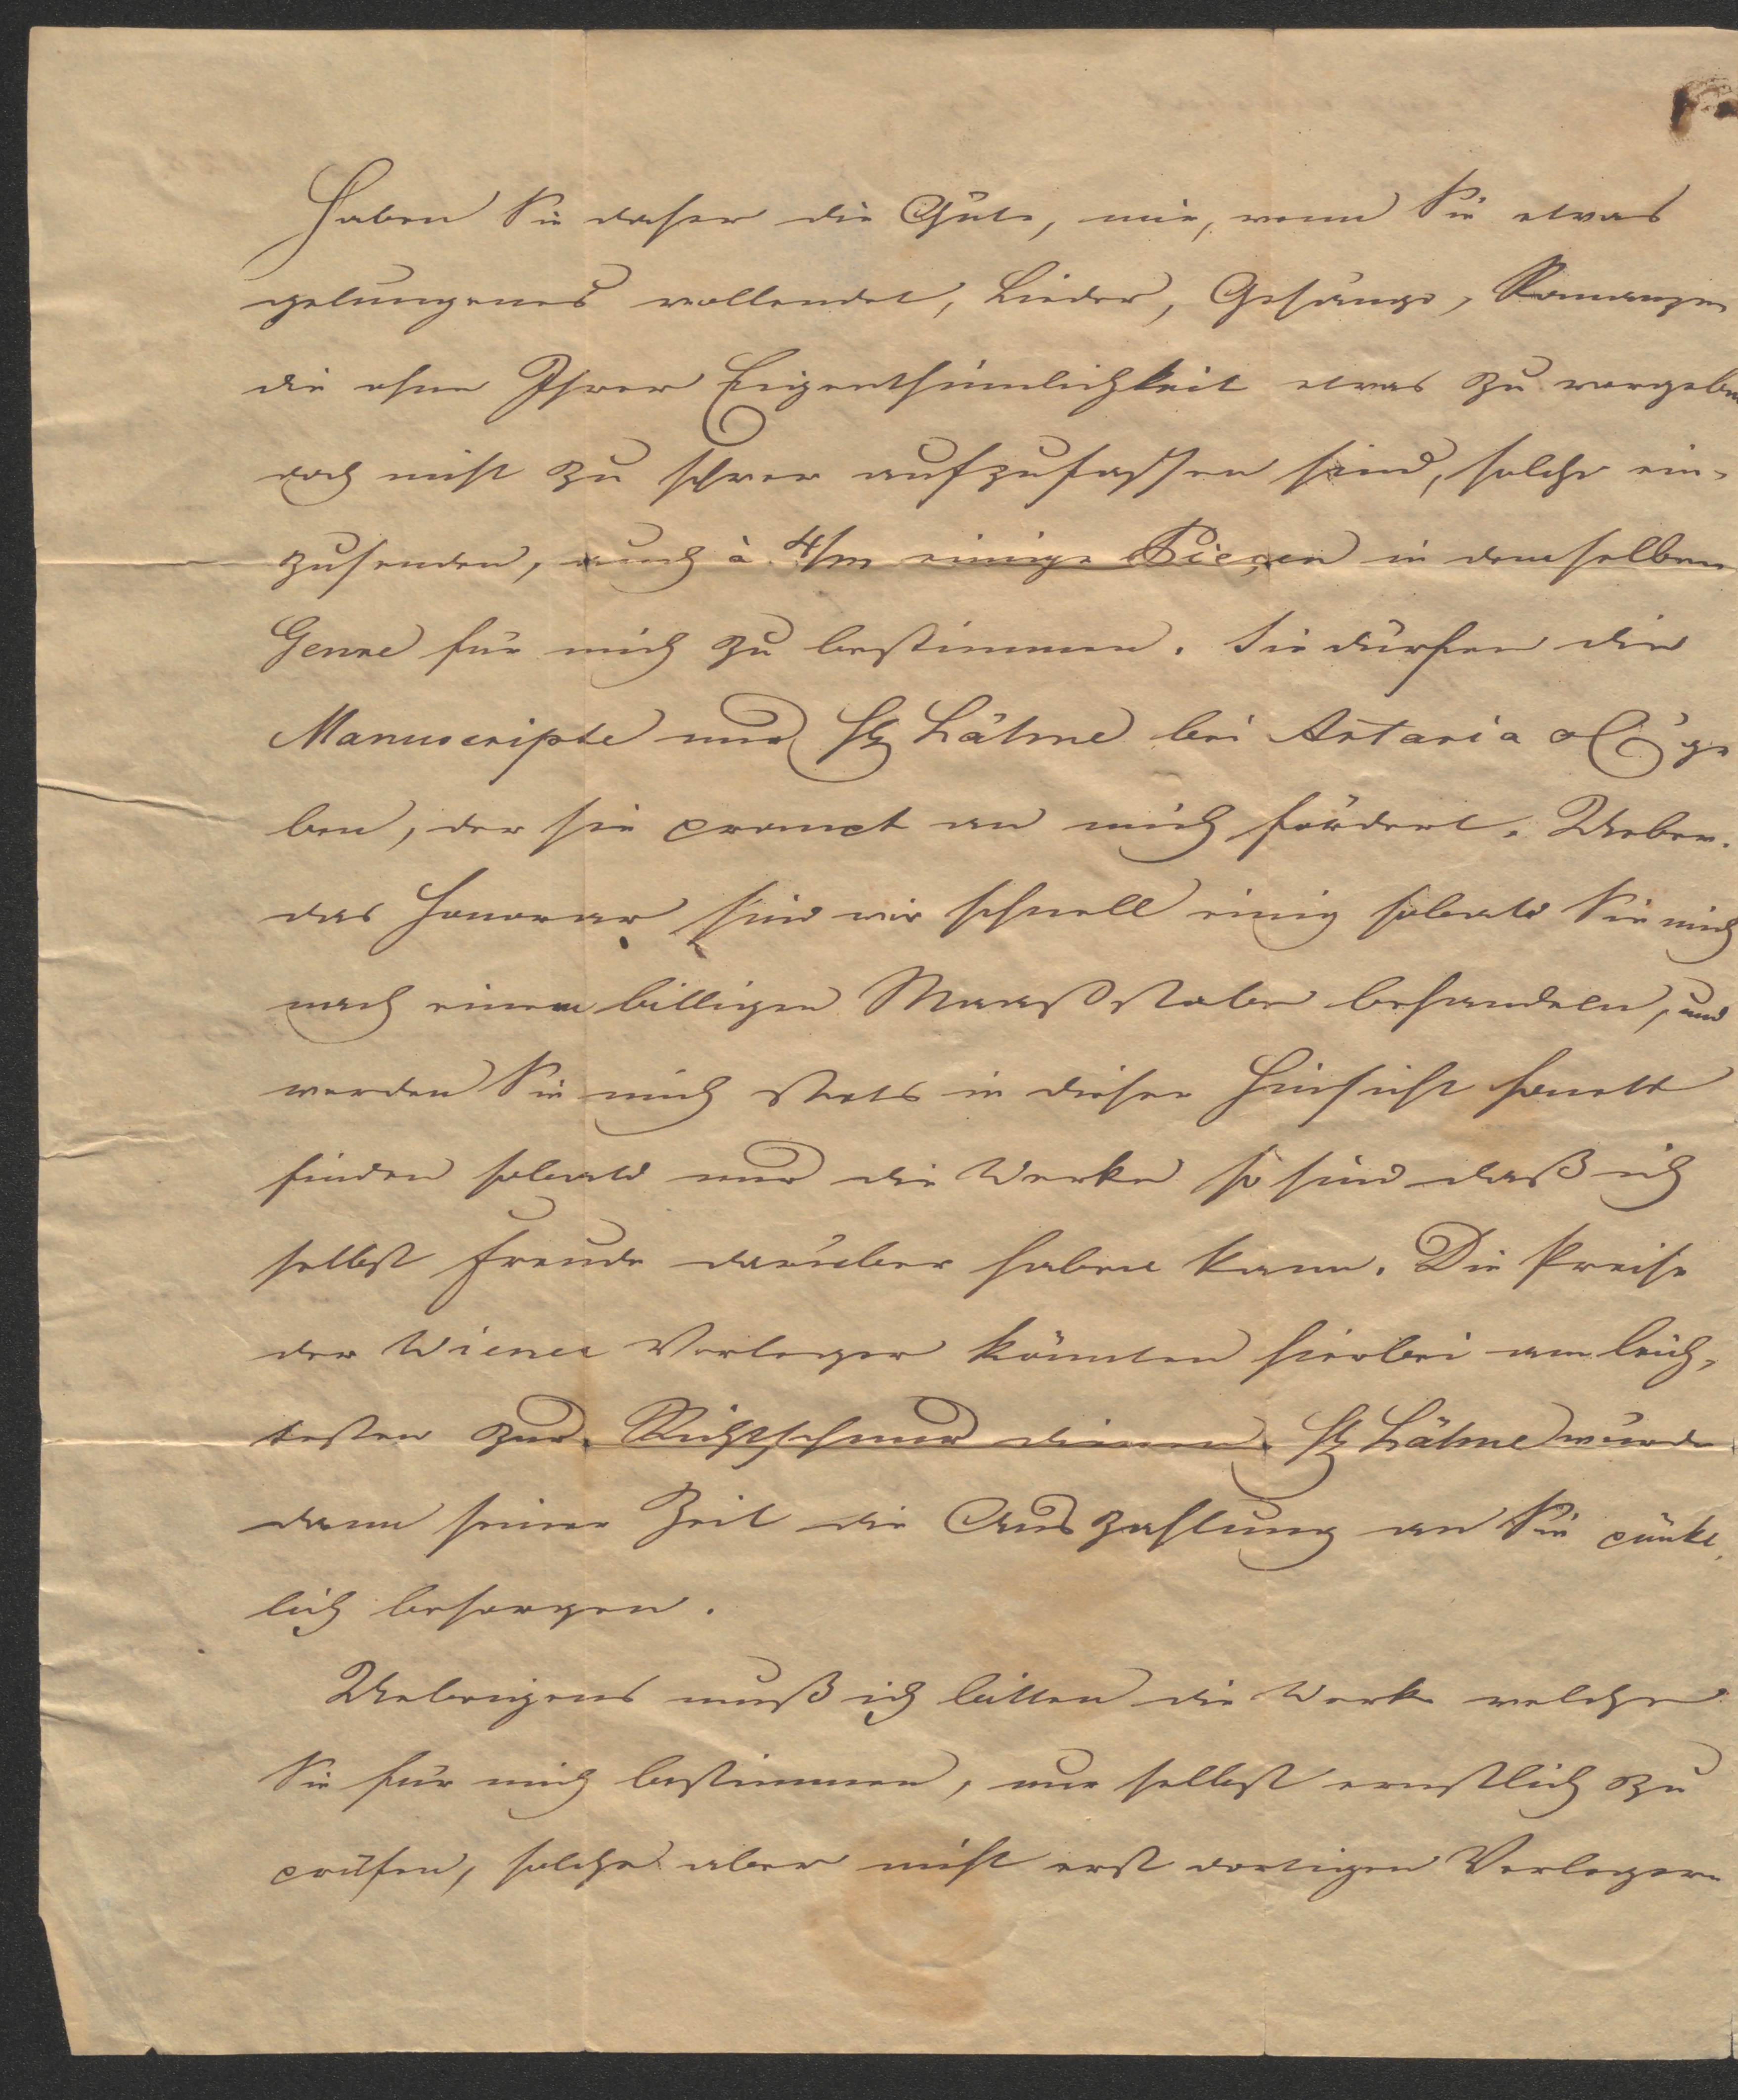 Haben Sie daher die Güte, mir, wenn Sie etwas
gelungenes vollendet, Lieder, Gesänge, Romanzen
die ohne Ihrer Eigenthümlichkeit etwas zu vergeben
doch nicht zu schwer aufzufassen sind, solche ein-
zusenden, auch à 4/m einige Pieçen in demselben
Genre für mich zu bestimmen. Sie dürfen die
Manuscripte nur H Lähne bei Artaria & Co ge
ben, der sie prompt an mich fördert. Ueber
das Honorar sind wir schnell einig sobald Sie mich
nach einem billigen Maasstabe behandeln, und
werden Sie mich stets in dieser Hinsicht honett
finden sobald nur die Werke so sind daß ich
selbst Freude darüber haben kann. Die Preise
der Wiener Verleger könnten hierbei am leich-
testen zur Richtschnur dienen. H Lähne würde
dann seiner Zeit die Auszahlung an Sie pünkt-
lich besorgen.
Uebrigens muß ich bitten die Werke welche
Sie für mich bestimmen, nur selbst ernstlich zu
prüfen, solche aber nicht erst dortigen Verlegern